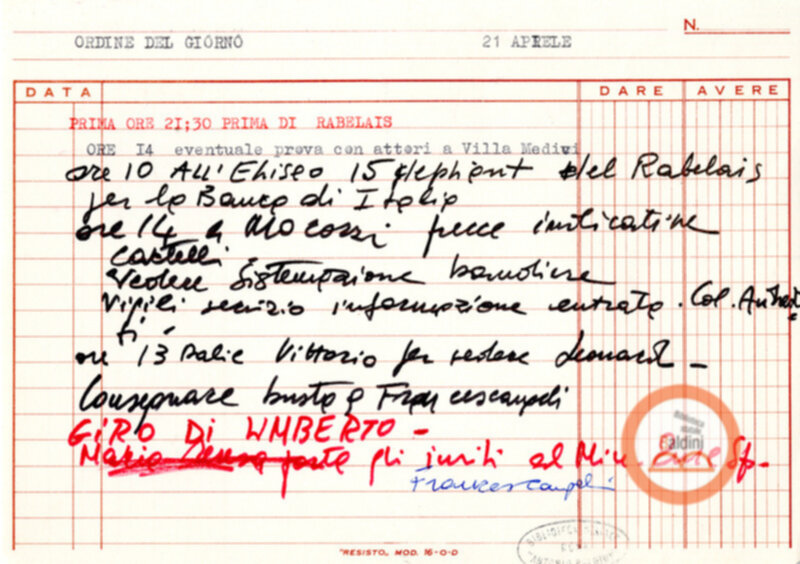 N.
ORDINE DEL GIORNO 21 APRELE
DATA DARE AVERE
PRIMA ORE 21;30 PRIMA DI RABELAIS
ORE 14 eventuale prova con attori a Villa Medivi
ore 10 ALL'Eliseo 15 elephant del Rabelais
per la Banca di Italia
ore 14 a frecce indicative
Castelli
Vedere Sistemazione bandiere
Vigili servizio informazione entrata. Col.
ti -
ore 13 Vittorio per vedere Leonard
Consegnare busta a Francescangeli
GIRO DI UMBERTO -
Maria porta gli inviti al Min. Sp.
Francescangeli
aldini
"RESISTO" MOD. 16-O-D